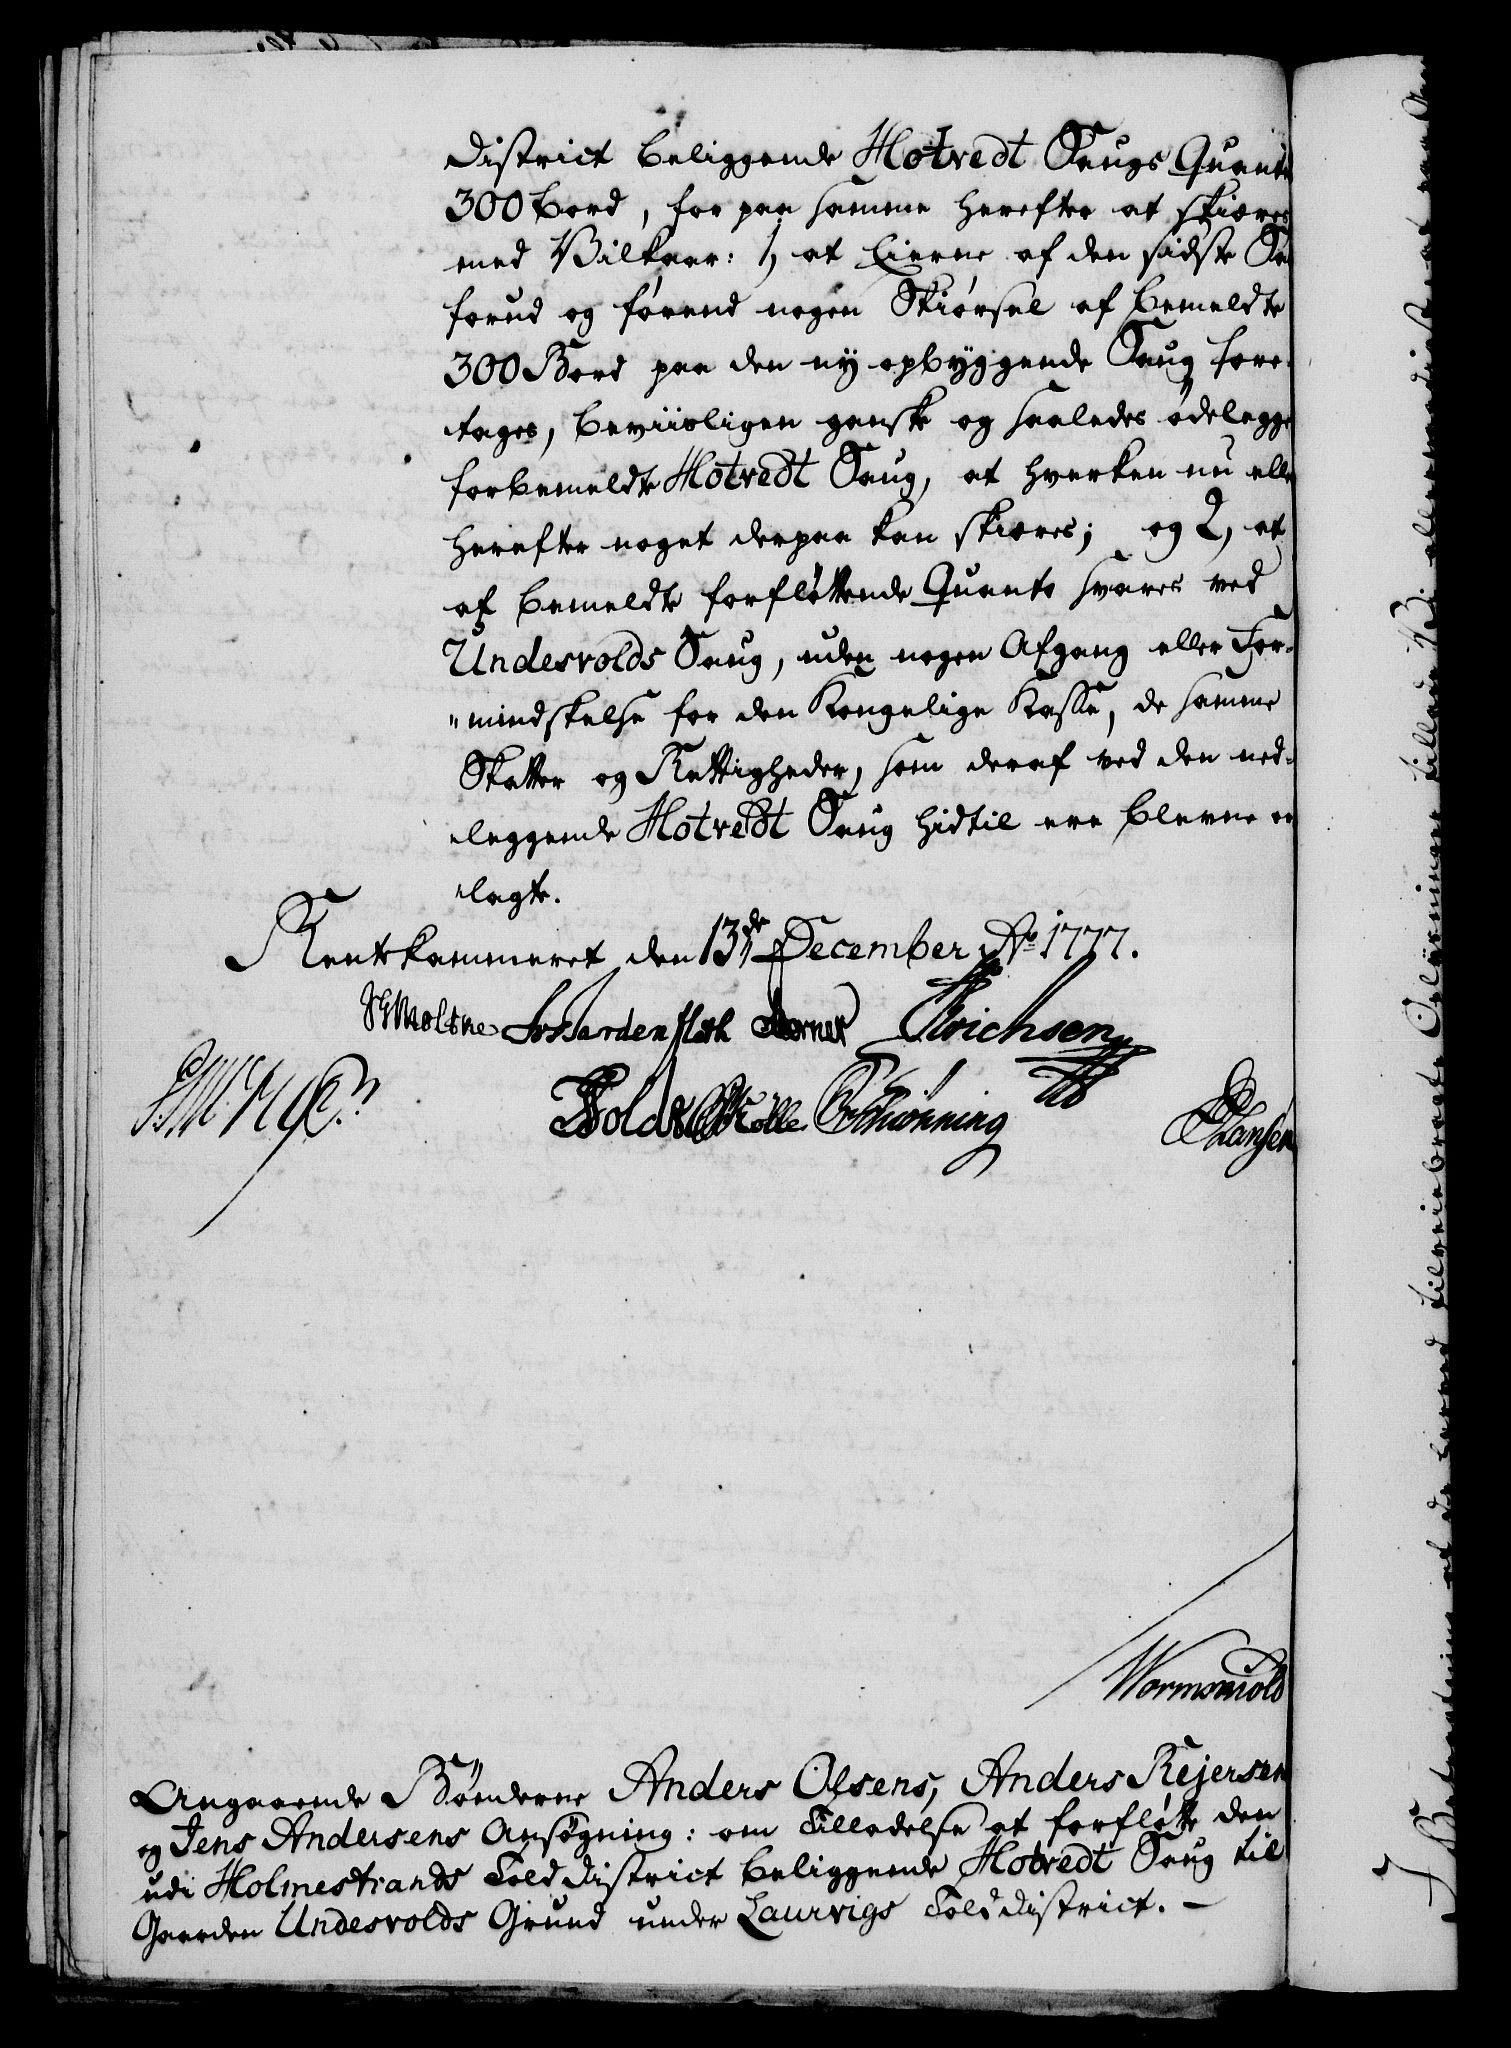 District beliggende Hotvedt Saugs Quanto
300 Bord, for paa samme herefter at skiæres
med Vilkaar: 1, at Eierne af den sidste
forud og førend nogen Skiørsel af bemeldte
300 Bord paa den ny opbyggende Saug fore-
tages, beviisligen ganske og saaledes ødelegge
forbemeldte Hotvedt Saug, at hverken nu eller
herefter noget derpaa kan skiæres; og 2, at
af bemeldte forfløttende Quanto svares ved
Undesvolds Saug, uden nogen Afgang eller For-
mindskelse for den Kongelige Kasse, de samme
Skatter og Rettigheder, som deraf ved den ned-
leggende Hotvedt Saug hidtil ere blevne er-
lagte.
Rentekammeret den 13de December Ao 1777.
Moltke Gardenfleth Berner Erichsen
Holdt Selle Schiønning Hansen
Wormskiold
Angaaende Bønderne Anders Olsens, Anders Rejersen
og Jens Andersens Ansøgning: om Tilladelse at forfløtte den
udi Holmestrands Told District beliggende Hotvedt Saug til
Gaarden Undesvolds Grund under Laurvigs Told District. –
J Betragtning af de forud tilveiebragte Oplysninger tillade Vi allernaadigst at